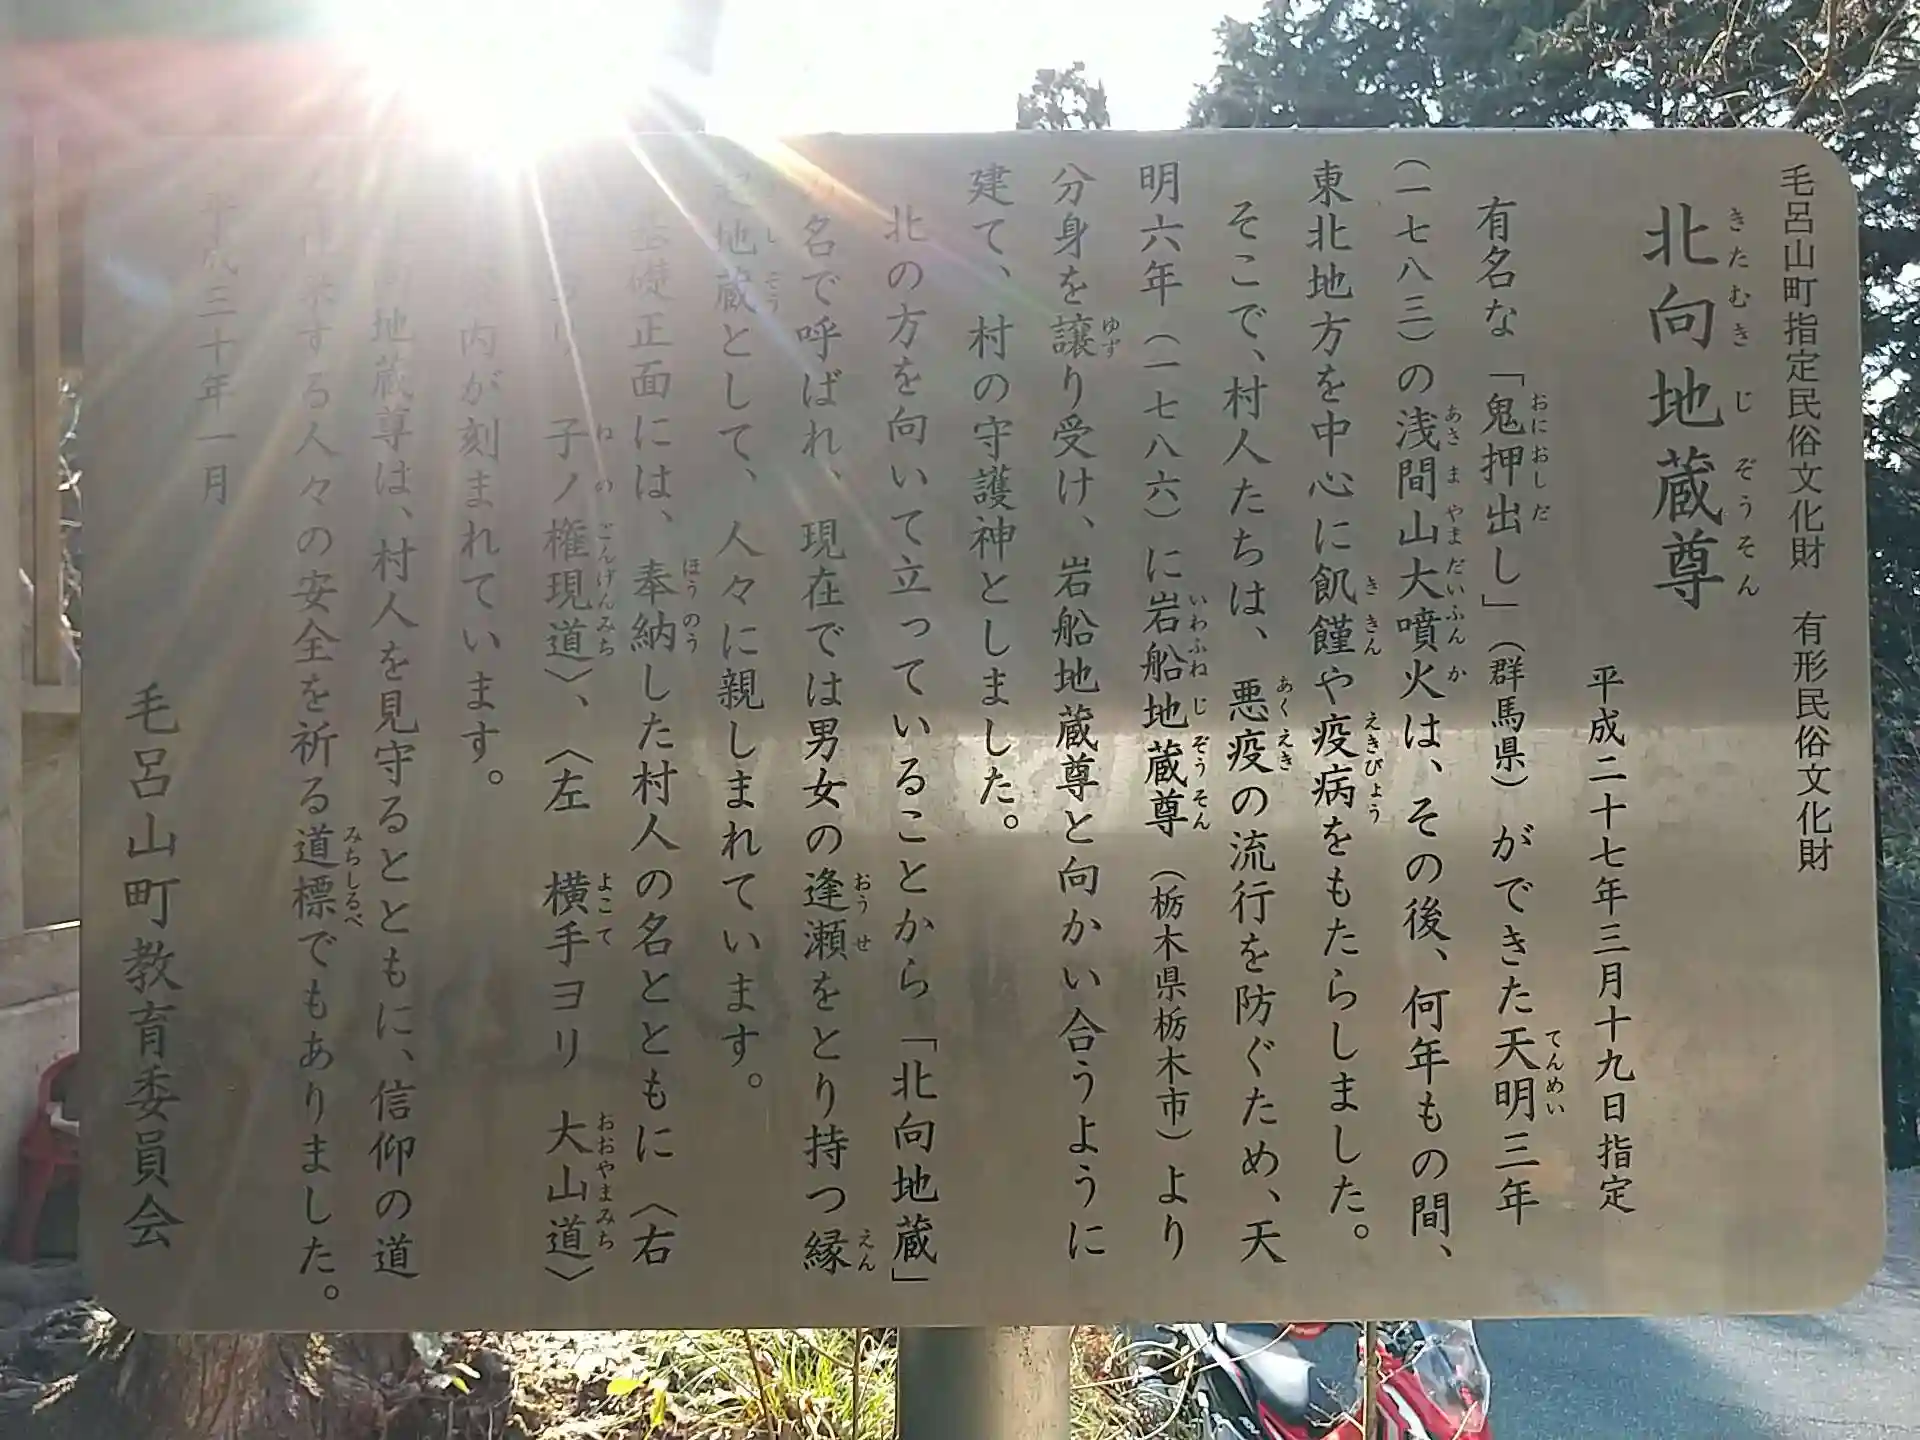 毛呂山町指定民俗文化財　有形民俗文化財
北向地蔵尊
平成二十七年三月十九日指定
有名な「鬼押出し」（群馬県）ができた天明三年
（一七八三）の浅間山大噴火は、その後、何年もの間、
東北地方を中心に飢饉や疫病をもたらしました。
そこで、村人たちは、悪疫の流行を防ぐため、天
明六年（一七八六）に岩船地蔵尊（栃木県栃木市）より
分身を譲り受け、岩船地蔵尊と向かい合うように
建て、村の守護神としました。
北の方を向いて立っていることから「北向地蔵」
名で呼ばれ、現在では男女の逢瀬をとり持つ縁
地蔵として、人々に親しまれています。
基礎正面には、奉納した村人の名とともに〈右
子ノ権現道〉、〈左　横手ヨリ　大山道〉
内が刻まれています。
地蔵尊は、村人を見守るとともに、信仰の道
する人々の安全を祈る道標でもありました。
平成三十年一月
毛呂山町教育委員会